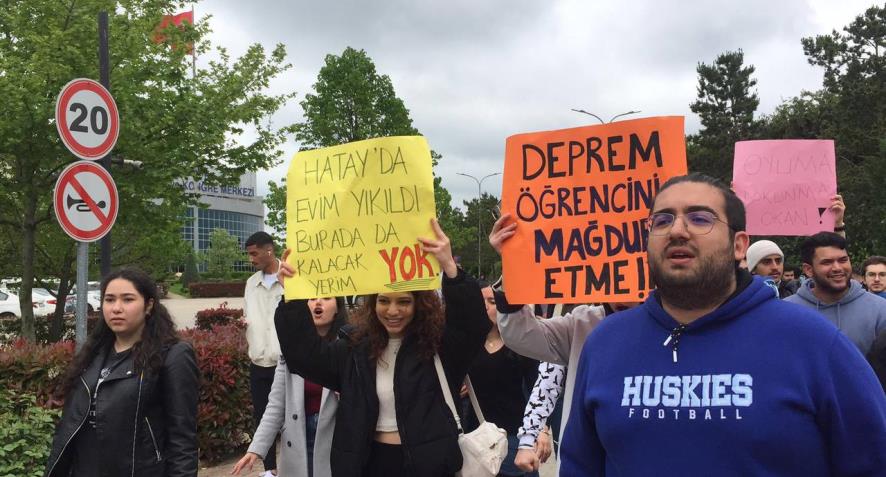 20
KONGRE MERKEZİ
HATAY'DA
EVİM YIKILDI
BURADA DA
KALACAK
YERİM
YOK.
DEPREM
ÖĞRENCİNİ
MAĞDUR
ETME!!
OYUMA
DOKUNMA
OKAN!
HUSKIES
FOOTBALL